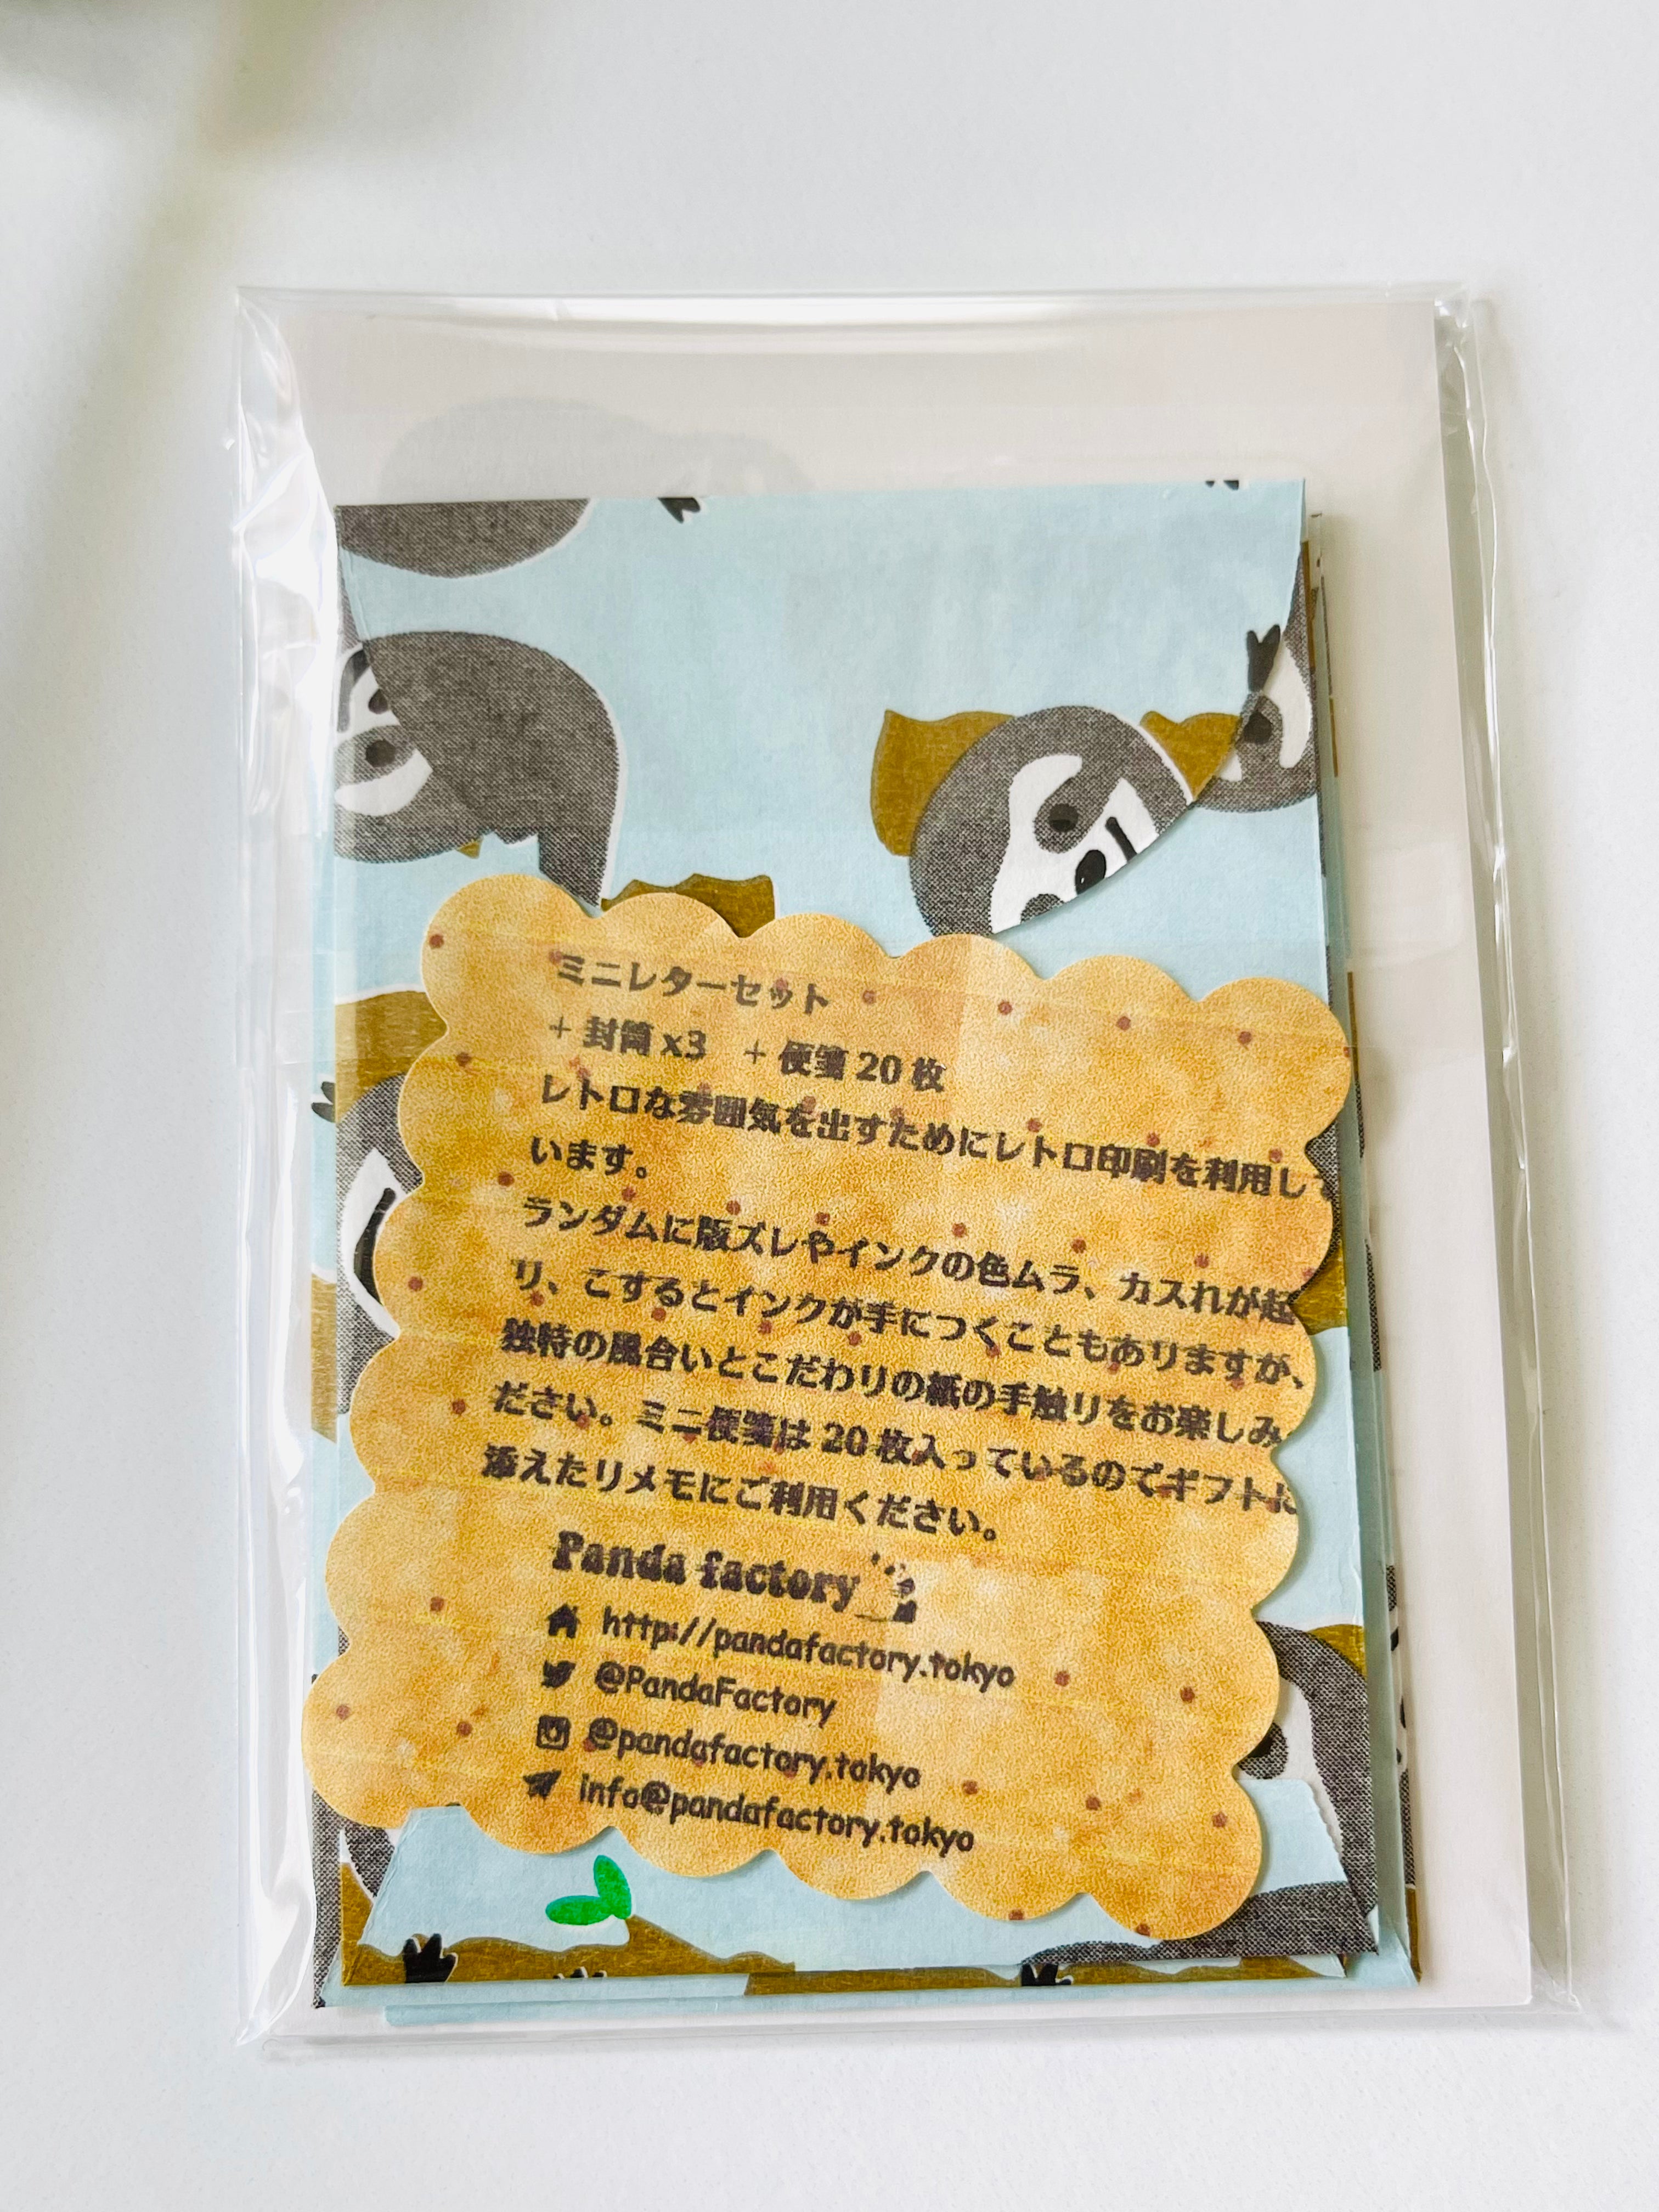 ミニレターセット
+ 封筒 x3 + 便箋 20 枚
レトロな雰囲気を出すためにレトロ印刷を利用し
います。
ランダムに版ズレやインクの色ムラ、カスれが起
り、こするとインクが手につくこともありますが、
独特の風合いとこだわりの紙の手触りをお楽しみ
ださい。ミニ便箋は 20 枚入っているのでギフトに
添えたりメモにご利用ください。
Panda factory
http://pandafactory.tokyo
@PandaFactory
@pandafactory.tokyo
info@pandafactory.tokyo